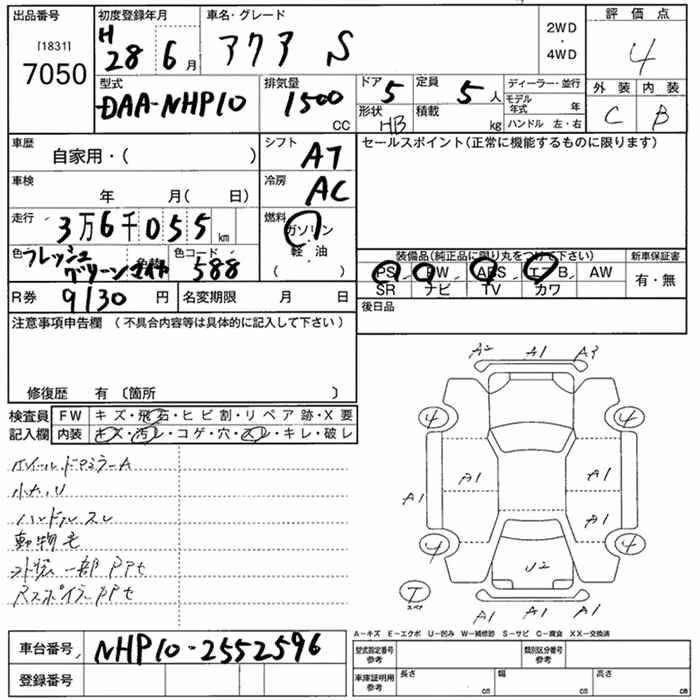 出品番号 初度登録年月 車名・グレード 2WD・4WD 評価点
[1831] 7050 H 28 6月 アクア S 4
型式 排気量 ドア 5 定員 5人 ディーラー・並行 外装 内装
DAA-NHP10 1500 CC 形状 HB 積載 kg モデル年式 年 C B
ハンドル 左・右
車歴 シフト セールスポイント(正常に機能するものに限ります)
自家用・( ) AT
車検 冷房
年 月( 日) AC
走行 3万6千055km 燃料
ガソリン
軽・油
( )
色 フレッシュグリーン 色コード 588
装備品(純正品に限り丸をつけて下さい) 新車保証書
PS PW ABS エアB AW 有・無
SR ナビ TV カワ
R券 9130円 名変期限 月 日 後日品
注意事項申告欄(不具合内容等は具体的に記入して下さい)
修復歴 有〔箇所 〕
検査員 FW キズ・飛石・ヒビ割・リペア跡・X要
記入欄 内装 キズ・汚レ・コゲ・穴・スレ・キレ・破レ
小A,U
ハンドルスレ
動物毛
外装一部PPt
Rスポイラ-PPt
A2 A1 A3
4 4
A1 A1
A1 A1
4 4
U2
T スペア
A1 A1 A1
A-キズ E-エクボ U-凹み W-補修跡 S-サビ C-腐食 XX-交換済
車台番号 NHP10-2552596
型式指定番号 参考 類別区分番号 参考
登録番号
車庫証明用 参考 長さ cm 幅 cm 高さ cm